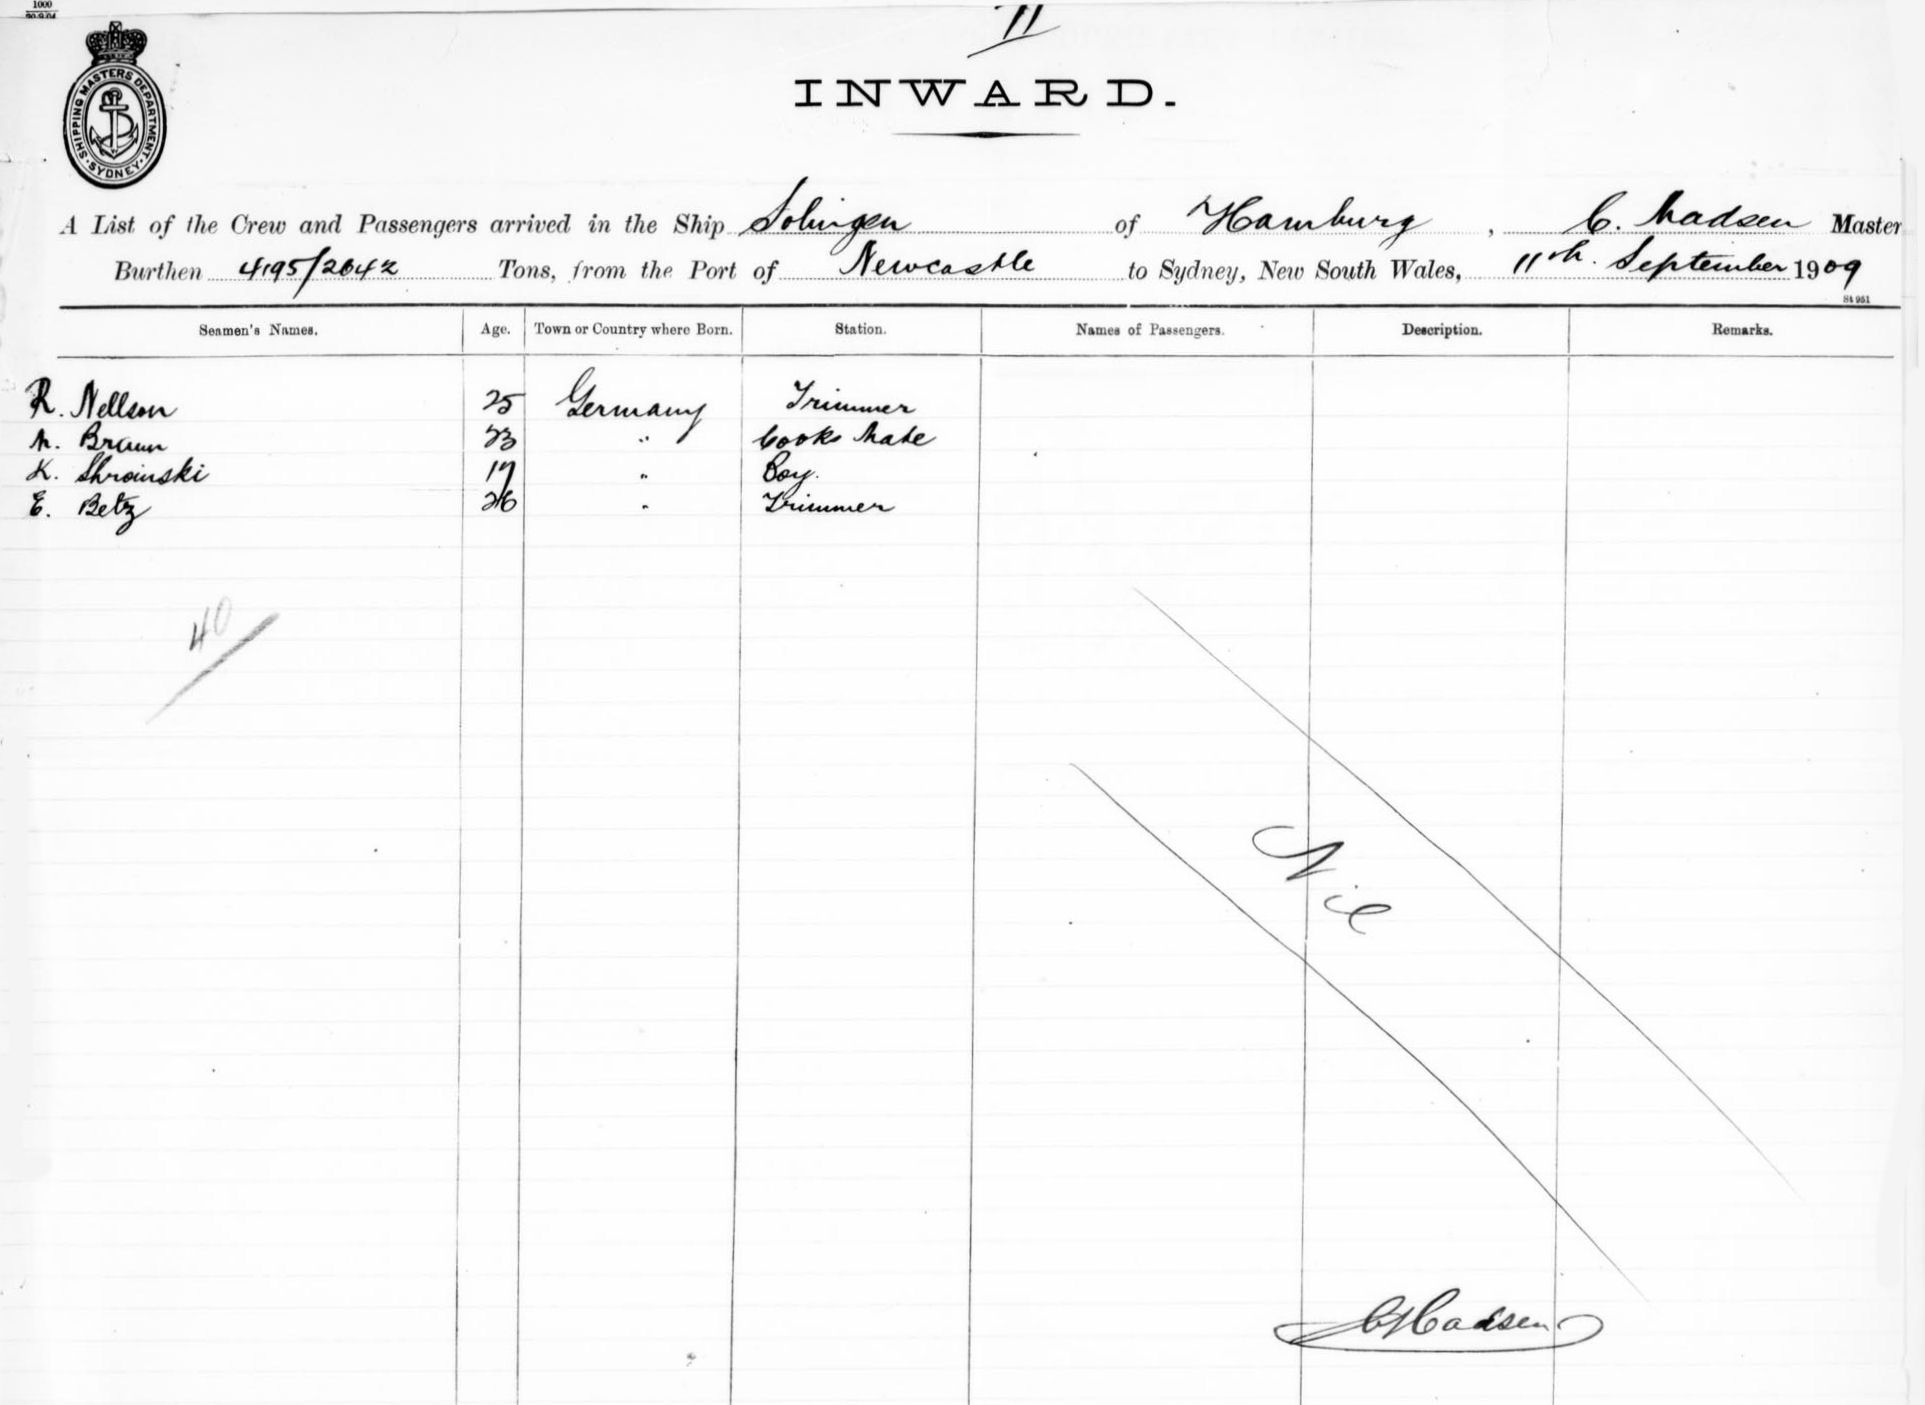 1000
20.9.04
11
SHIPPING MASTERS DEPARTMENT. SYDNEY.
INWARD.
A List of the Crew and Passengers arrived in the Ship Solingen of Hamburg, C. Madsen Master
Burthen 4195/2642 Tons, from the Port of Newcastle to Sydney, New South Wales, 11th. September 1909
St 951
Seamen's Names. Age. Town or Country where Born. Station. Names of Passengers. Description. Remarks.
R. Nellson 25 Germany Trimmer
M. Braun 23 " Cooks Mate
K. 17 " Boy.
E. Betz 26 " Trimmer
40
Nil
C Madsen